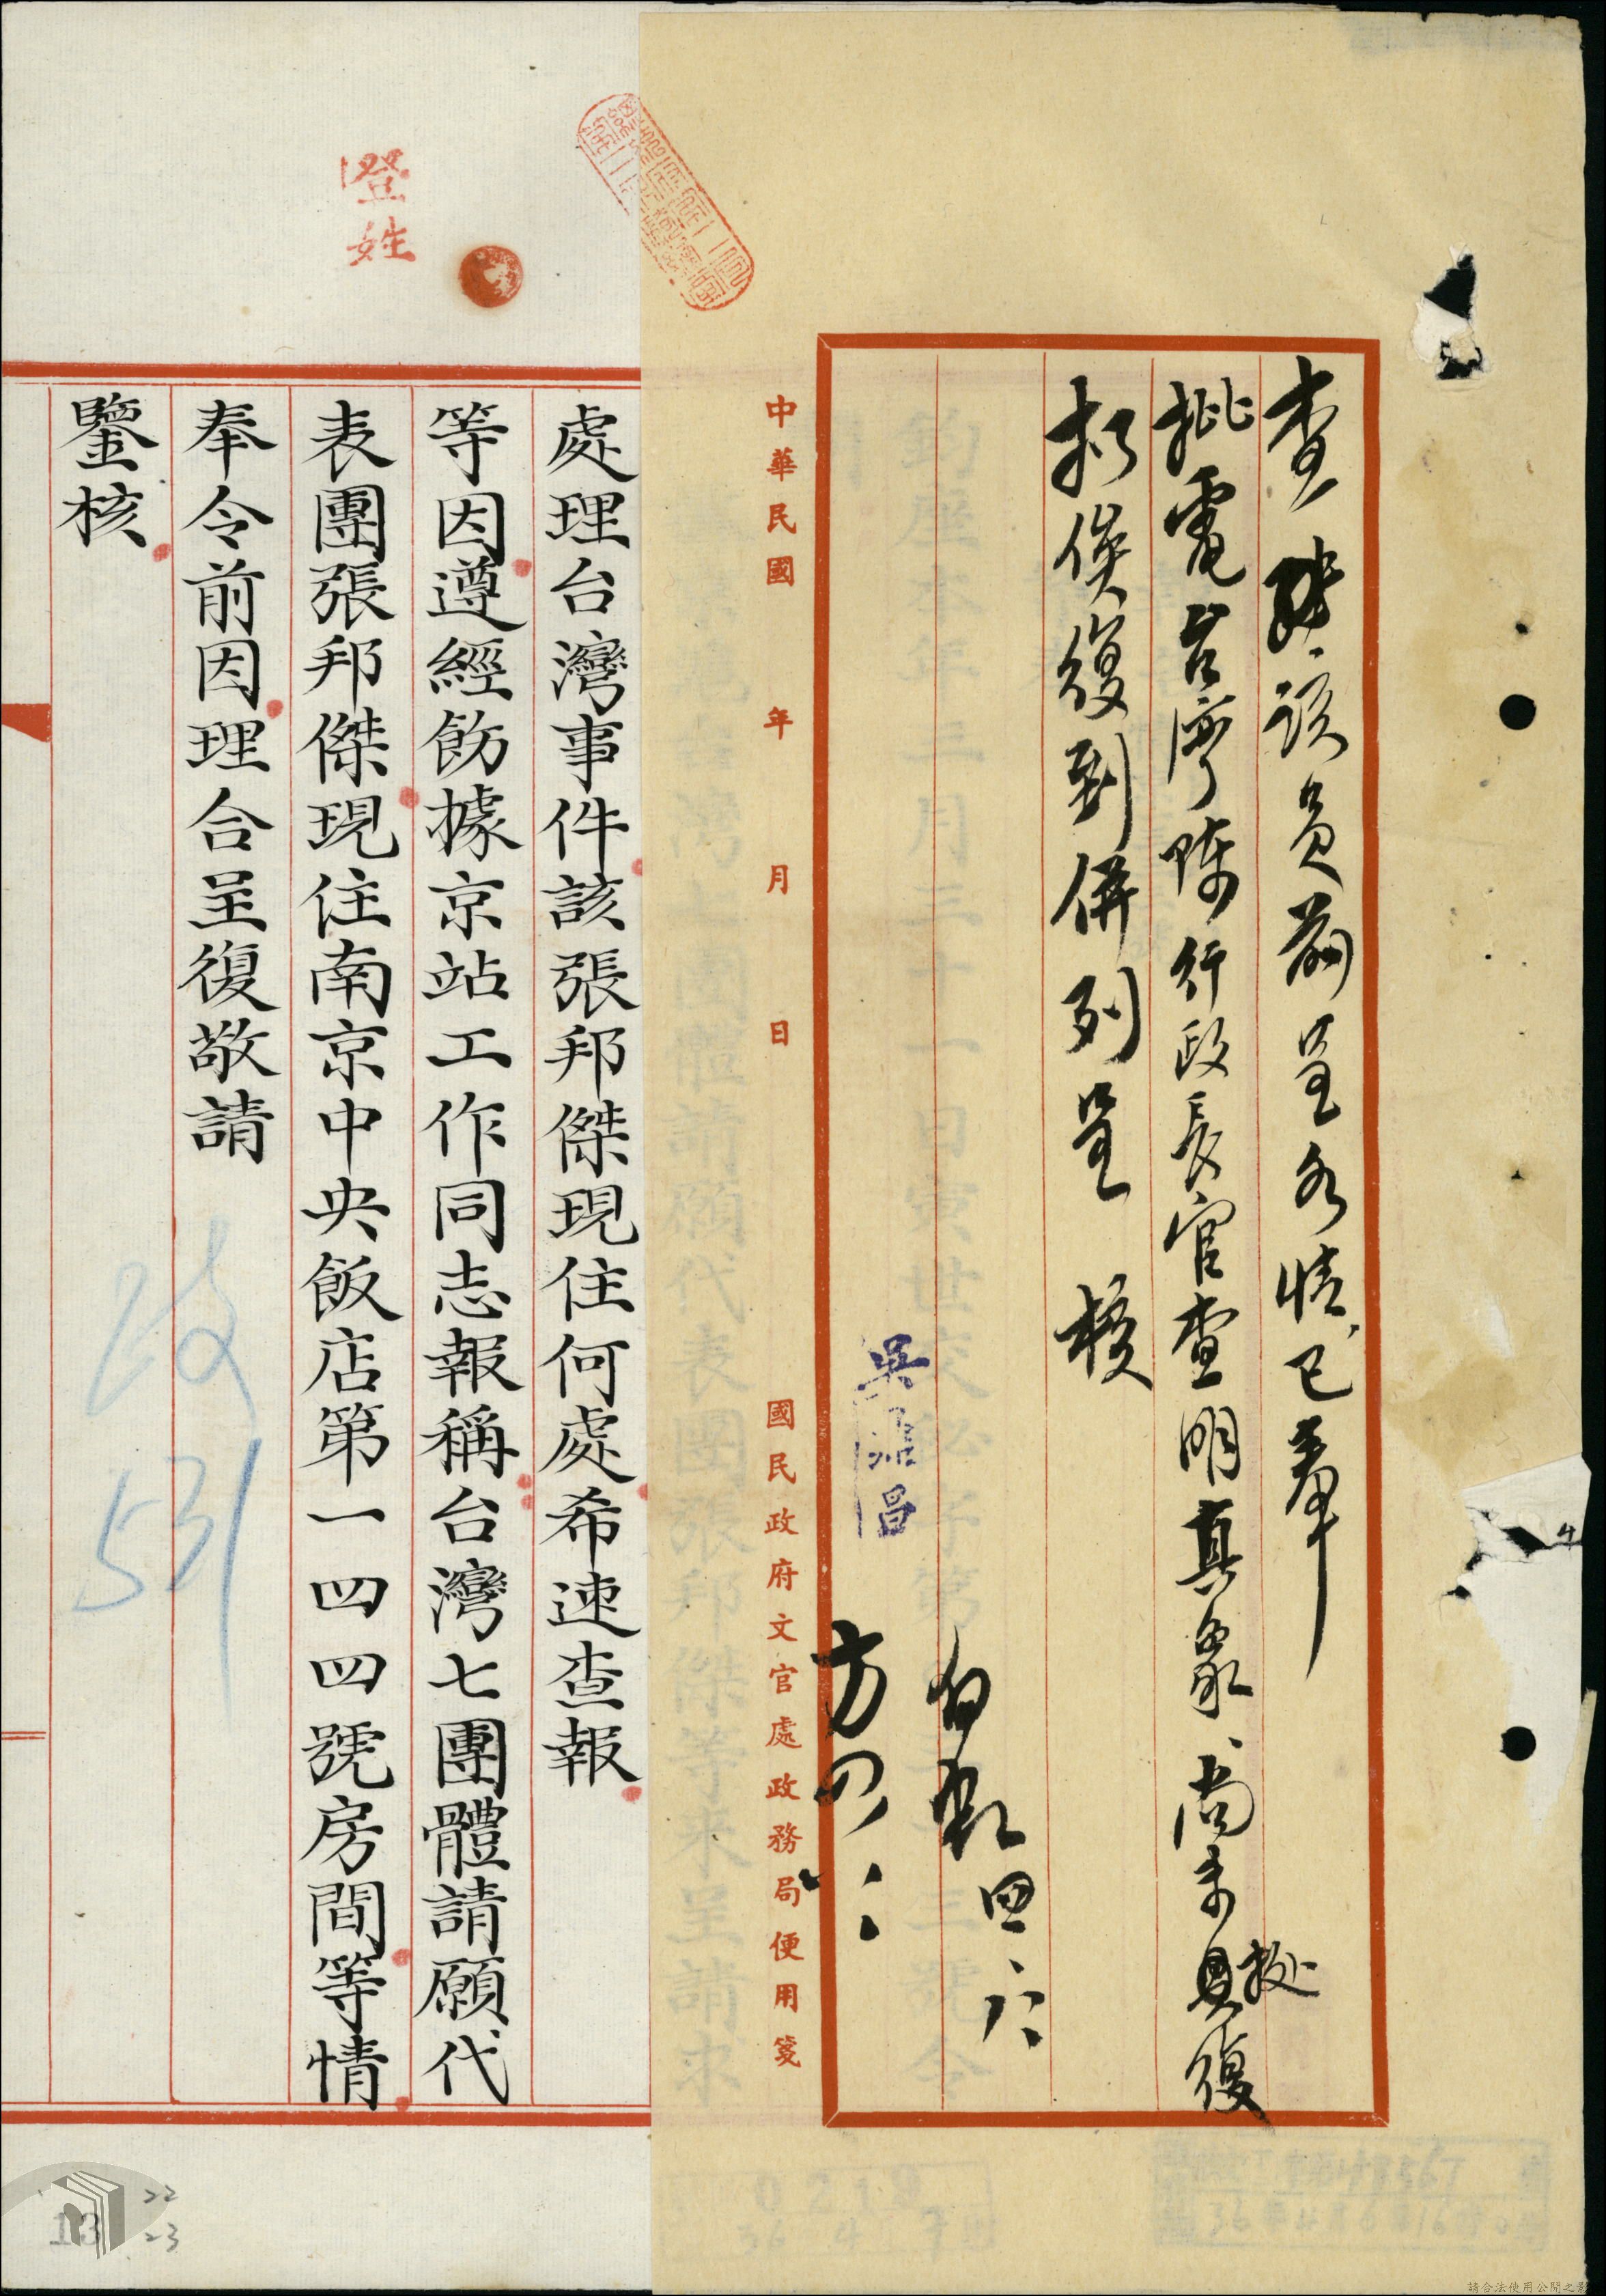 查該員前呈各情已奉
批電台灣陳行政長官查明真象尚未具復
擬
擬俟復到併列呈核
四、六
方四、
吳鼎昌
中華民國 年 月 日
國民政府文官處政務局便用箋
處理台灣事件該張邦傑現住何處希速查報
等因遵經飭據京站工作同志報稱台灣七團體請願代
表團張邦傑現住南京中央飯店第一四四號房間等情
奉令前因理合呈復敬請
鑒核
政
531
22
23
13
請合法使用公開之影